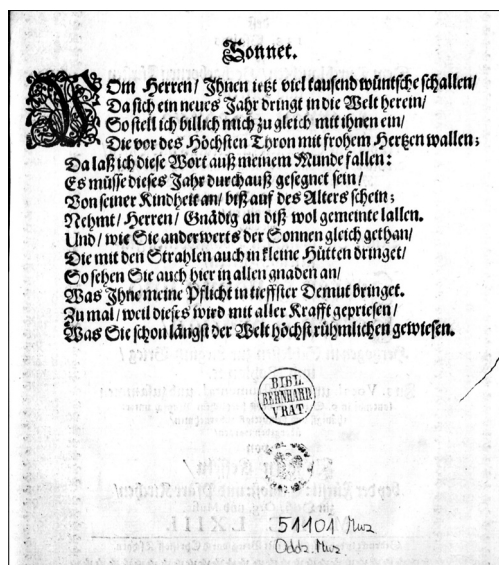 Sonnet.
WOm Herren/ Ihnen ietzt viel tausend wüntsche schallen/
Da sich ein neues Jahr dringt in die Welt herein/
So stell ich billich mich zu gleich mit ihnen ein/
Die vor des Höchsten Thron mit frohem Hertzen wallen;
Da laß ich diese Wort auß meinem Munde fallen:
Es müsse dieses Jahr durchauß gesegnet sein/
Von seiner Kindheit an/ biß auf des Alters schein;
Nehmt/ Herren/ Gnädig an diß wol gemeinte lallen.
Und/ wie Sie anderwerts der Sonnen gleich gethan/
Die mit den Strahlen auch in kleine Hütten dringet/
So sehen Sie auch hier in allen gnaden an/
Was Ihne meine Pflicht in tieffster Demut bringet.
Zu mal/ weil dieses wird mit aller Krafft gepriesen/
Was Sie schon längst der Welt höchst rühmlichen gewiesen.
BIBL.
BERNHARD
VRAT.
51101 Muz
Oddz. Muz.